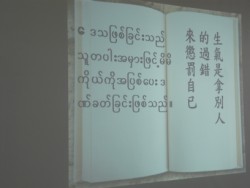 ဒေသဖြစ်ခြင်းသည်
သူတပါးအမှားဖြင့်မိမိ
ကိုယ်ကိုအပြစ်ပေး ဒ
ဏ်ခတ်ခြင်းဖြစ်သည်။
生氣是拿別人
的過錯
來懲罰自己